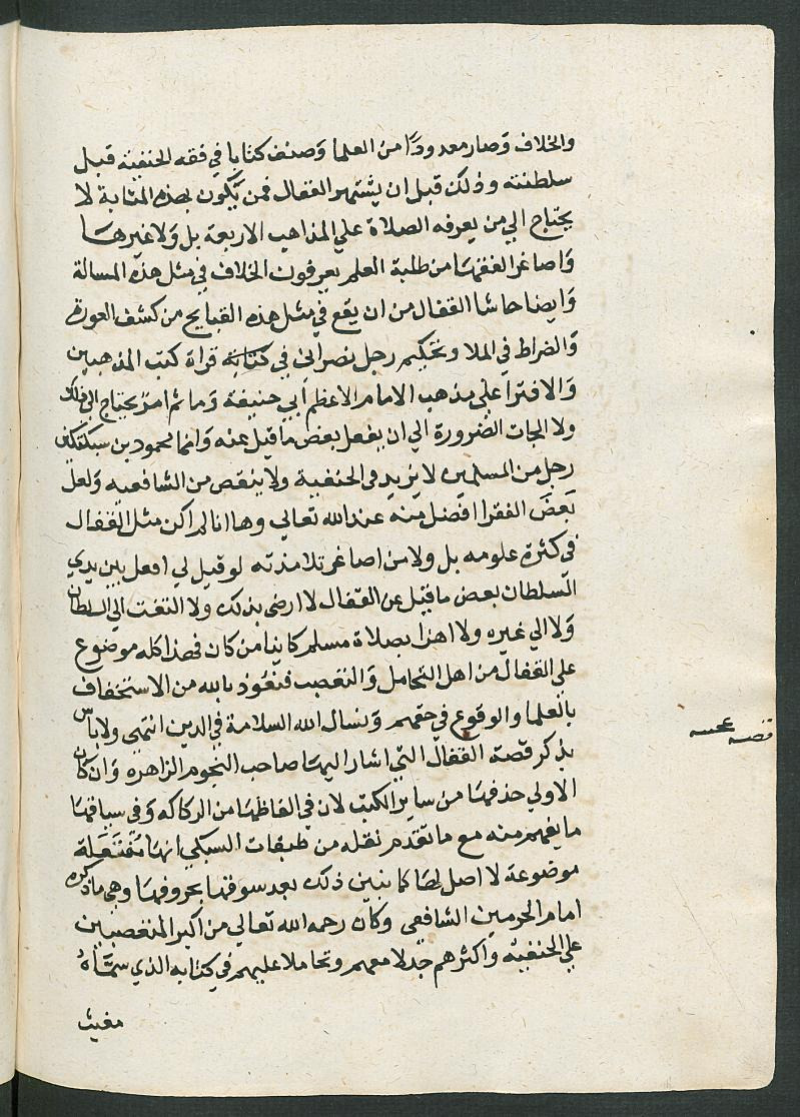 والخلاف وصار معدودًا من العلما وصنف كتابا في فقه الحنفية قبل
سلطنته وذلك قبل ان يشتهر القفال فمن يكون بهذه المثابة لا
يحتاج الي من يعرفه الصلاة علي المذاهب الاربعة بل ولا غيرها
واصاغر الفقها من طلبة العلم يعرفون الخلاف في مثل هذه المسالة
وايضا حاشا القفال من ان يقع في مثل هذه القبايح من كشف العورة
والضراط في الملا وتحكيم رجل نصراني في كتابة قراة كتب المذهبين
والافترا علي مذهب الامام الاعظم أبي حنيفة وما ثم امر يحتاج الي ذلك
ولا الجات الضرورة الي ان يفعل بعض ما قيل عنه وانما محمود بن سبكتكين
رجل من المسلمين لا يزيد في الحنفية ولا ينقص من الشافعيه ولعل
بَعضَ الفقرا افضل منه عند الله تعالي وها انا لم اكن مثل القفال
في كثرة علومه بل ولا من اصاغر تلامذته لو قيل لي افعل بين يدي
السلطان بعض ما قيل عن القفال لا ارضي بذلك ولا التفت الي السلطان
ولا الي غيره ولا اهزا بصلاة مسلم كاينا من كان فهذا كله موضوع
علي القفال من اهل التحامل والتعصب فنعوذ بالله من الاستخفاف
بالعلما والوقوع في حقهم ونسال الله السلامة في الدين انتهى ولا باس
بذكر قصة القفال التي اشار اليها صاحب النجوم الزاهره وان كان
الاولي حذفها من ساير الكتب لان في الفاظها من الركاكه وفي سياقها
ما يفهم منه مع ما تقدم نقله من طبقات السبكي انها مُفْتَعَلة
موضوعة لا اصل لها كما نبين ذلك بعد سوقها بحروفها وهي ما ذكره
امام الحرمين الشافعي وكان رحمه الله تعالي من اكبر المتعصبين
علي الحنفية واكثرهم جدلا معهم وتحاملا عليهم في كتابه الذي سمَّاهُ
مغيث
قصه